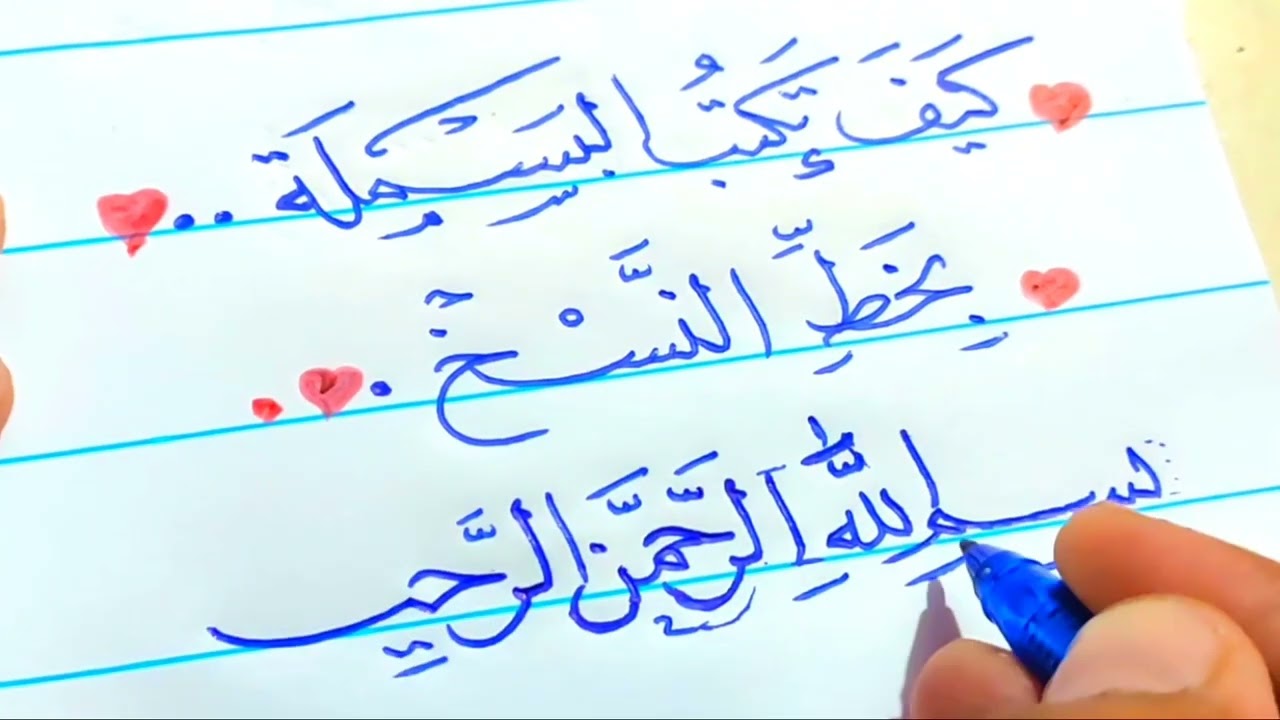 كَيَفَ إِكَتبُ البَسِمِلَة ..
بِخَطِّ النَّسْخَ .
بسم اللَّهِ الرَّحمَنَ الرَّحيم